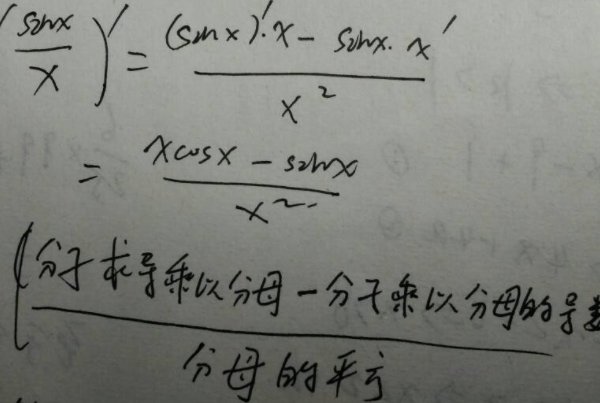 (sinx/x)' = ((sinx)'·x - sinx·x')/x²
= (xcosx - sinx)/x²
(分子求导乘以分母-分子乘以分母的导数
分母的平方